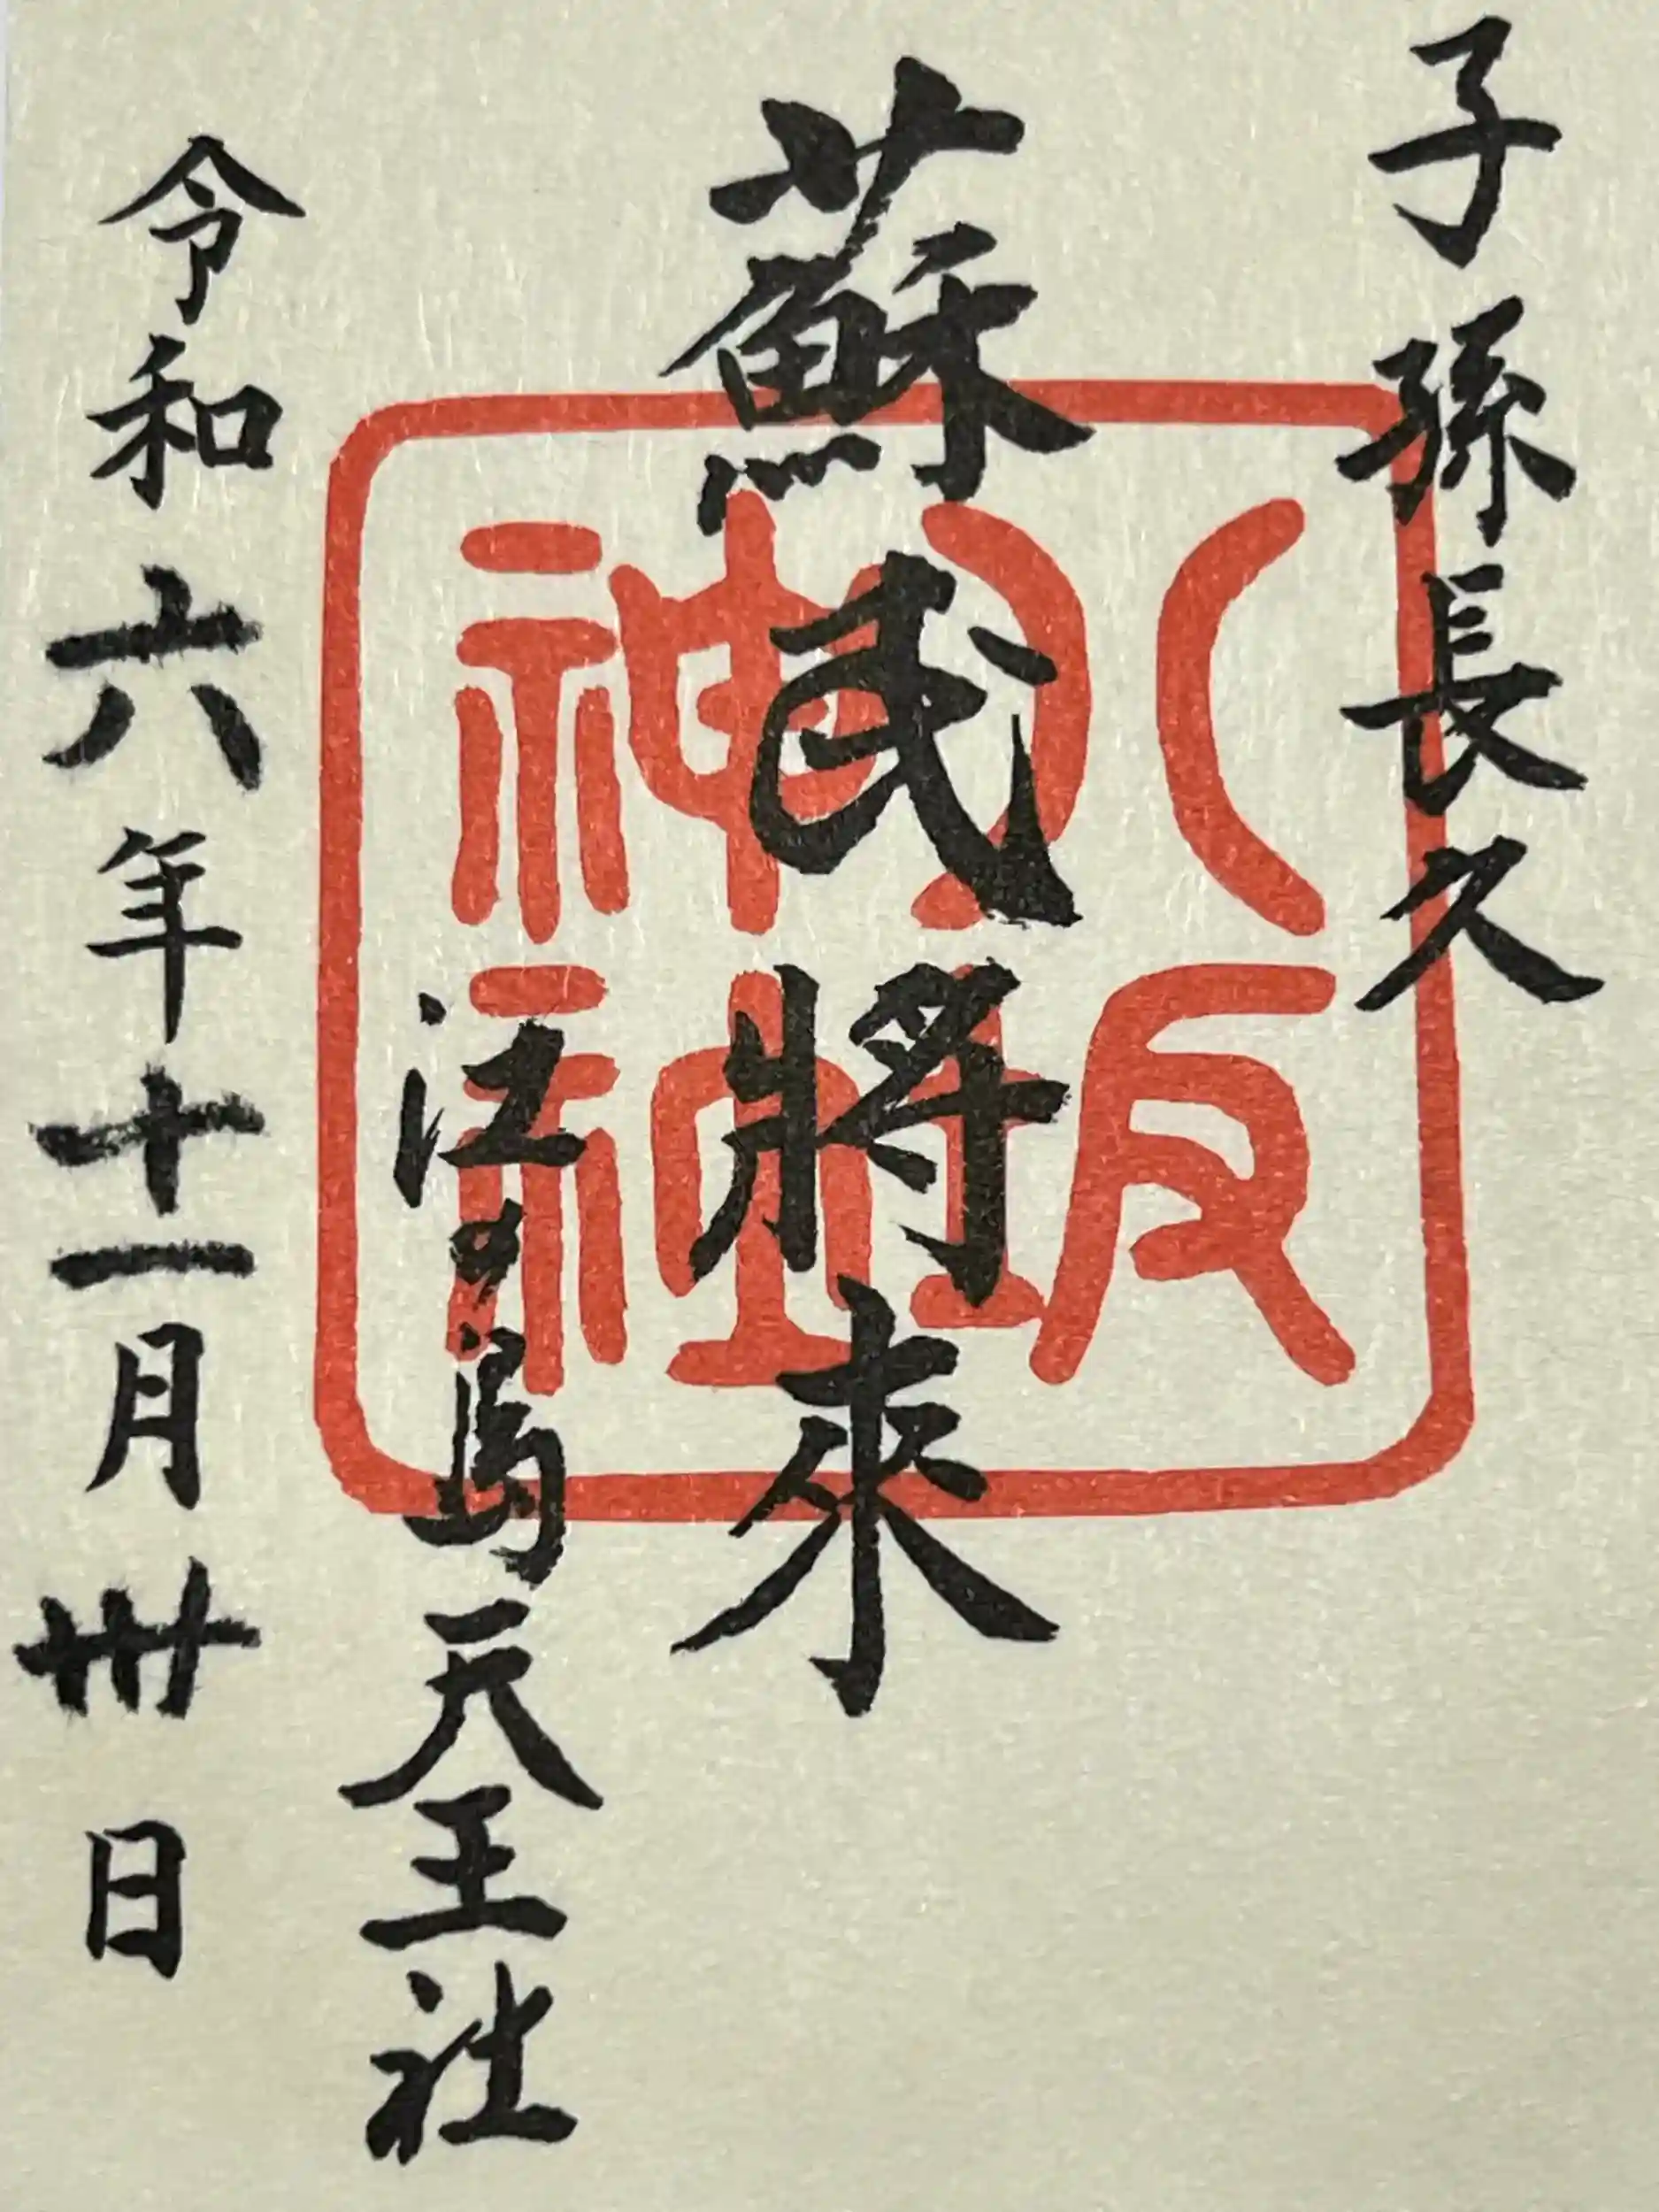 子孫長久
蘇民將來
八坂神社
江ノ島天王社
令和六年十一月卅日